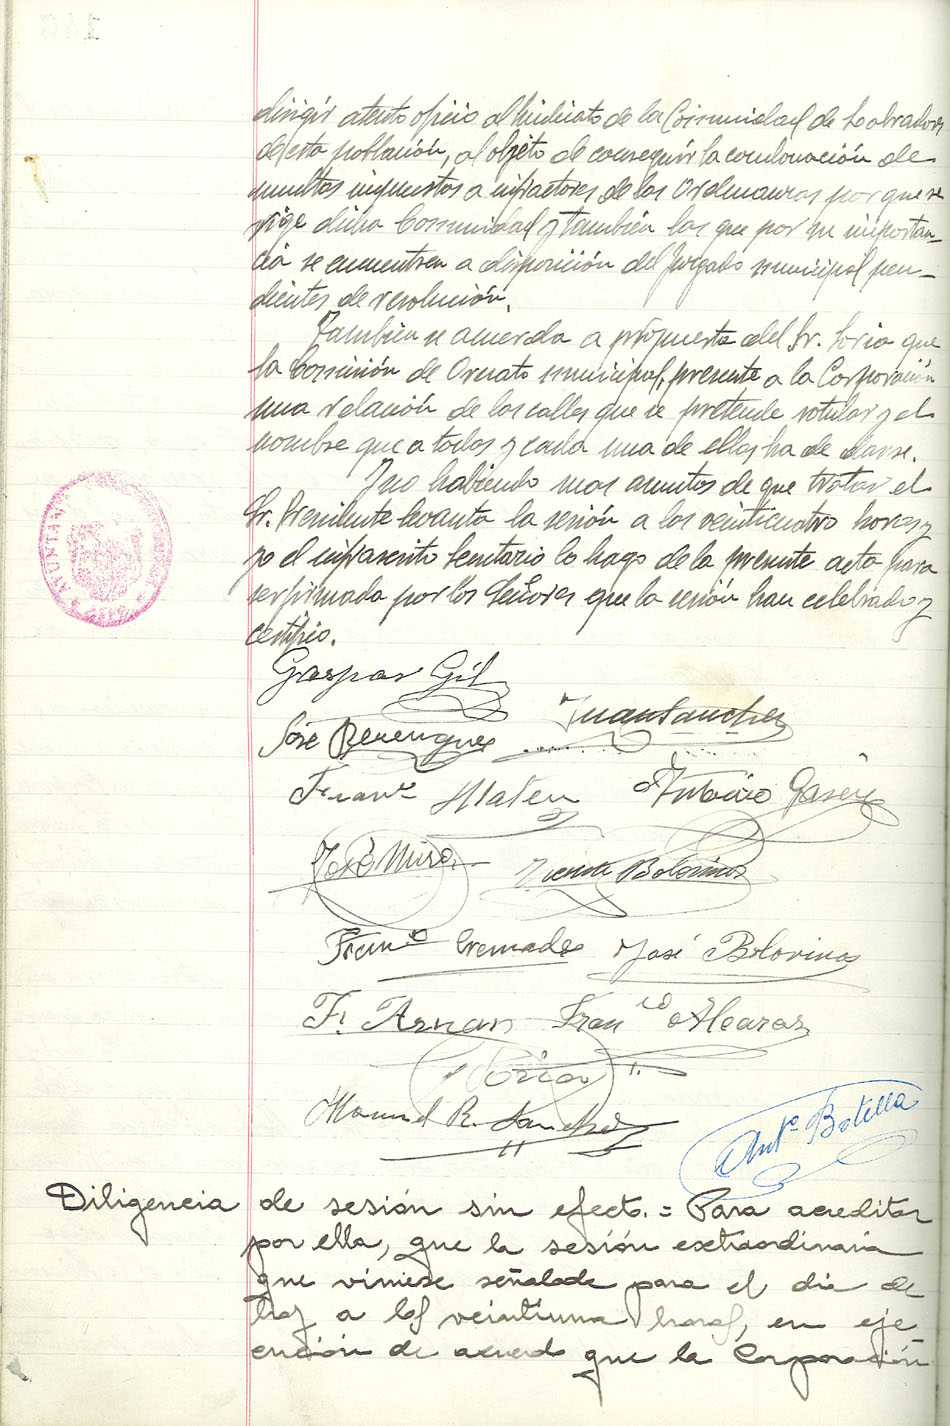 dirigir atento oficio al Sindicato de la Comunidad de Labradores
de esta población, al objeto de conseguir la condonación de
multas impuestas a infractores de las Ordenanzas por que se
rige dicha Comunidad y también las que por su importan-
cia se encuentran a disposición del Juzgado municipal pen-
dientes de resolución.
Tambien se acuerda a propuesta del Sr. Soria que
la Comisión de Ornato municipal, presente a la Corporación
una relación de las calles que se pretende rotular y el
nombre que a todas y cada una de ellas ha de darse.
Y no habiendo mas asuntos de que tratar el
Sr. Presidente levanta la sesión a las veinticuatro horas y
yo el infrascrito Secretario lo hago de la presente acta para
ser firmada por los Señores que la sesión han celebrado y
certifico.
AYUNTAMIENTO
Gaspar Gil
José Berenguer Juan Sanchez
Franco Mateu Antonio García
José Miró Vicente Bolorinos
Franco Cremades José Bolorinos
F. Aznar Franco Alcaraz
Soria
Manuel R. Sanchez
Anto Botella
Diligencia de sesión sin efecto. = Para acreditar
por ella, que la sesión extraordinaria
que viniese señalada para el dia de
hoy a las veintiuna horas, en eje-
cución de acuerdo que la Corporación